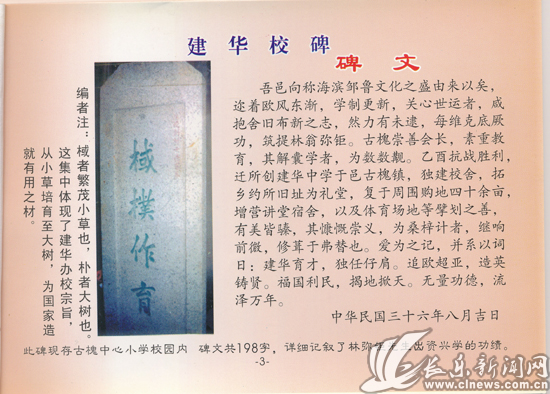 建华校碑
碑文
吾邑向称海滨邹鲁文化之盛由来以矣,
迩着欧风东渐,学制更新,关心世运者,咸
抱舍旧布新之志,然力有未逮,每维克底厥
功,筑提林翁弥钜。古槐崇善会长,素重教
育,其解囊学者,为数数觏。乙酉抗战胜利,
迁所创建华中学于邑古槐镇,独建校舍,拓
乡约所旧址为礼堂,复于周围购地四十余亩,
增营讲堂宿舍,以及体育场地等擘划之善,
有美皆臻,其慷慨崇义,为桑梓计者,继响
前徽,修葺于弗替也。爰为之记,并系以词
曰:建华育才,独任仔肩。追欧超亚,造英
铸贤。福国利民,揭地掀天。无量功德,流
泽万年。
中华民国三十六年八月吉日
棫樸作育
编者注:棫者繁茂小草也,朴者大树也。
这集中体现了建华办校宗旨,
从小草培育至大树,为国家造
就有用之材。
此碑现存古槐中心小学校园内 碑文共198字,详细记叙了林弥钜先生出资兴学的功绩。
-3-
长乐新闻网
www.clnews.com.cn